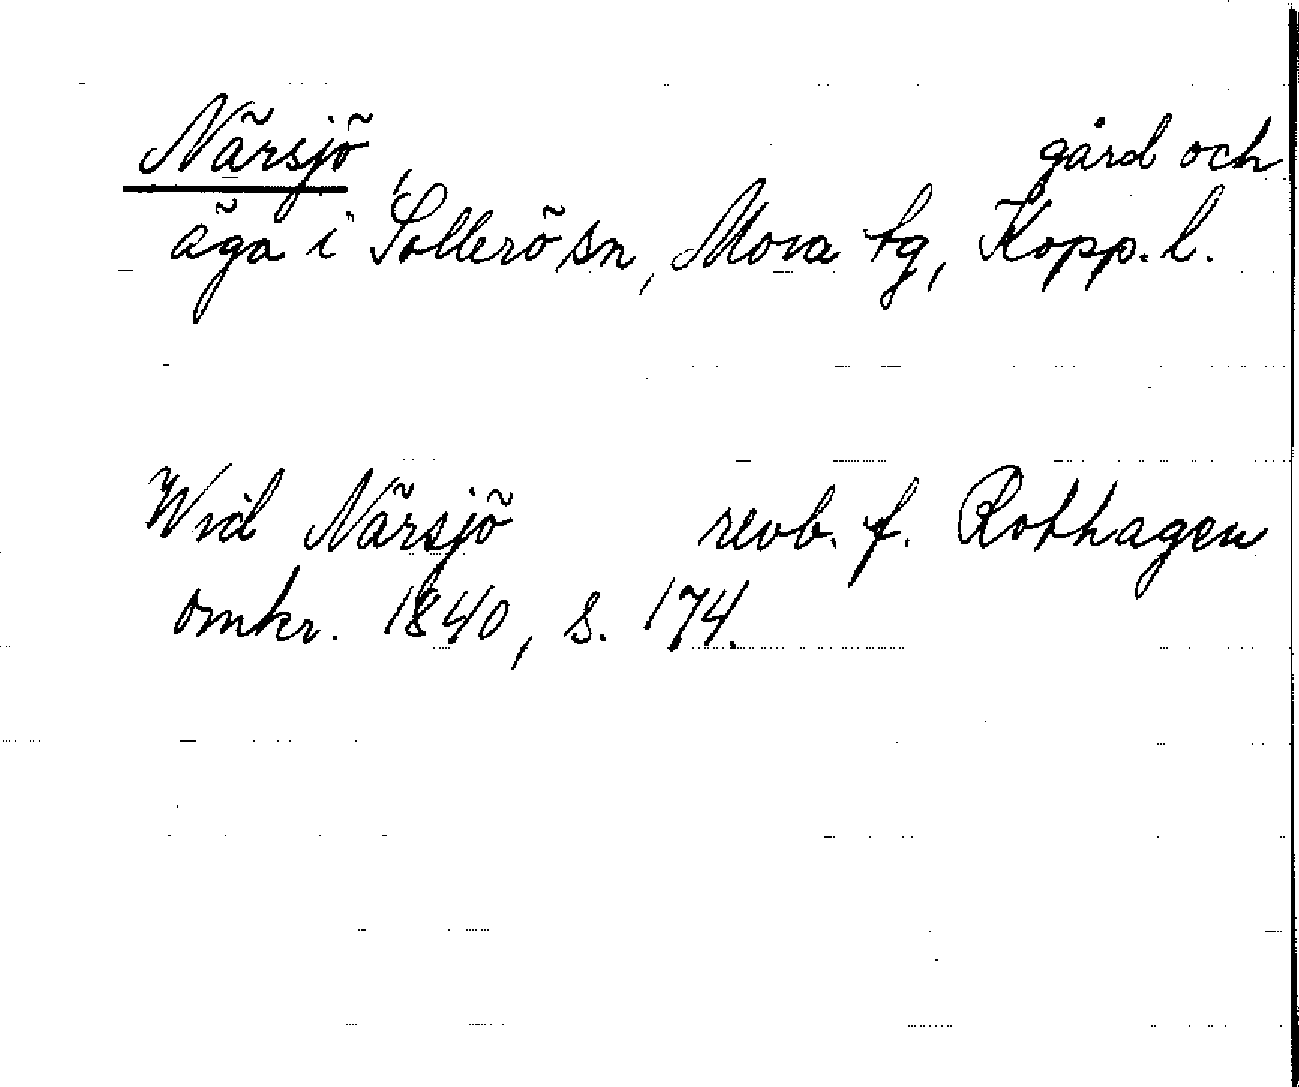 Närsjö, gård och
äga i Sollerö sn, Mora tg, Kopp. l.
Wid Närsjö revb. f. Rothagen
omkr. 1840, s. 174.